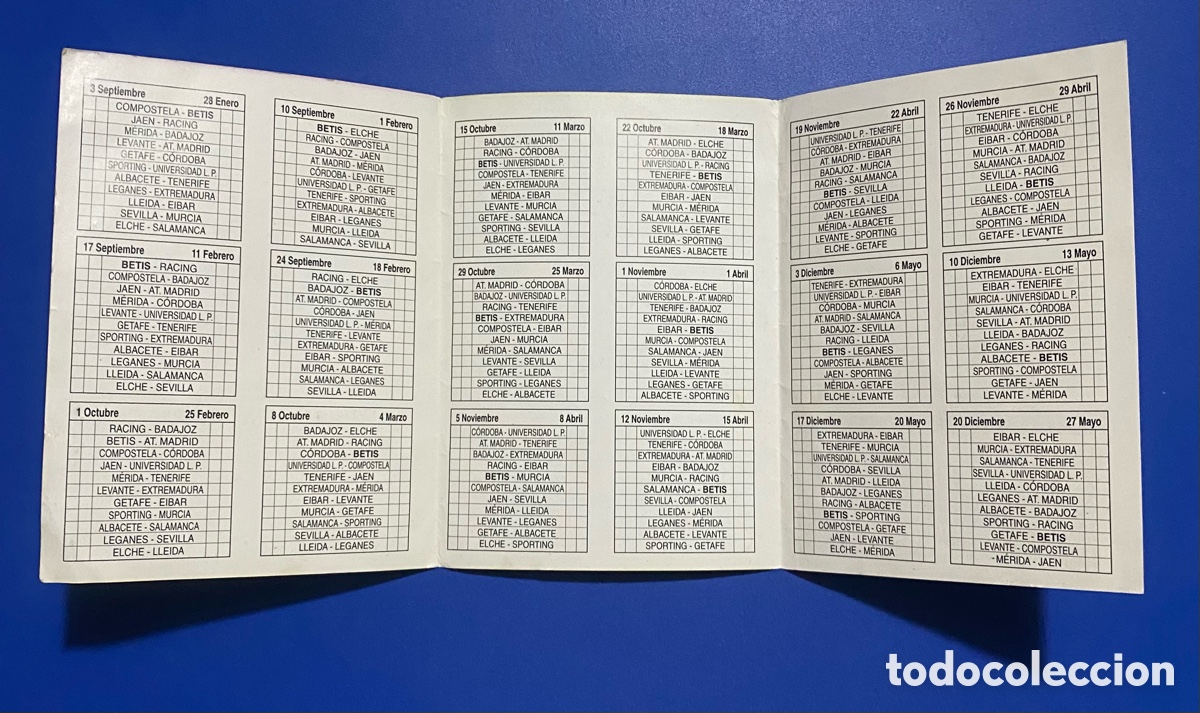 3 Septiembre 28 Enero
COMPOSTELA - BETIS
JAEN - RACING
MÉRIDA - BADAJOZ
LEVANTE - AT. MADRID
GETAFE - CÓRDOBA
SPORTING - UNIVERSIDAD L.P.
ALBACETE - TENERIFE
LEGANES - EXTREMADURA
LLEIDA - EIBAR
SEVILLA - MURCIA
ELCHE - SALAMANCA
17 Septiembre 11 Febrero
BETIS - RACING
COMPOSTELA - BADAJOZ
JAEN - AT. MADRID
MÉRIDA - CÓRDOBA
LEVANTE - UNIVERSIDAD L.P.
GETAFE - TENERIFE
SPORTING - EXTREMADURA
ALBACETE - EIBAR
LEGANES - MURCIA
LLEIDA - SALAMANCA
ELCHE - SEVILLA
1 Octubre 25 Febrero
RACING - BADAJOZ
BETIS - AT. MADRID
COMPOSTELA - CÓRDOBA
JAEN - UNIVERSIDAD L.P.
MÉRIDA - TENERIFE
LEVANTE - EXTREMADURA
GETAFE - EIBAR
SPORTING - MURCIA
ALBACETE - SALAMANCA
LEGANES - SEVILLA
ELCHE - LLEIDA
10 Septiembre 1 Febrero
BETIS - ELCHE
RACING - COMPOSTELA
BADAJOZ - JAEN
AT. MADRID - MÉRIDA
CÓRDOBA - LEVANTE
UNIVERSIDAD L.P. - GETAFE
TENERIFE - SPORTING
EXTREMADURA - ALBACETE
EIBAR - LEGANES
MURCIA - LLEIDA
SALAMANCA - SEVILLA
24 Septiembre 18 Febrero
RACING - ELCHE
BADAJOZ - BETIS
AT. MADRID - COMPOSTELA
CÓRDOBA - JAEN
UNIVERSIDAD L.P. - MÉRIDA
TENERIFE - LEVANTE
EXTREMADURA - GETAFE
EIBAR - SPORTING
MURCIA - ALBACETE
SALAMANCA - LEGANES
SEVILLA - LLEIDA
8 Octubre 4 Marzo
BADAJOZ - ELCHE
AT. MADRID - RACING
CÓRDOBA - BETIS
UNIVERSIDAD L.P. - COMPOSTELA
TENERIFE - JAEN
EXTREMADURA - MÉRIDA
EIBAR - LEVANTE
MURCIA - GETAFE
SALAMANCA - SPORTING
SEVILLA - ALBACETE
LLEIDA - LEGANES
15 Octubre 11 Marzo
BADAJOZ - AT. MADRID
RACING - CÓRDOBA
BETIS - UNIVERSIDAD L.P.
COMPOSTELA - TENERIFE
JAEN - EXTREMADURA
MÉRIDA - EIBAR
LEVANTE - MURCIA
GETAFE - SALAMANCA
SPORTING - SEVILLA
ALBACETE - LLEIDA
ELCHE - LEGANES
29 Octubre 25 Marzo
AT. MADRID - CÓRDOBA
BADAJOZ - UNIVERSIDAD L.P.
RACING - TENERIFE
BETIS - EXTREMADURA
COMPOSTELA - EIBAR
JAEN - MURCIA
MÉRIDA - SALAMANCA
LEVANTE - SEVILLA
GETAFE - LLEIDA
SPORTING - LEGANES
ELCHE - ALBACETE
5 Noviembre 8 Abril
CÓRDOBA - UNIVERSIDAD L.P.
AT. MADRID - TENERIFE
BADAJOZ - EXTREMADURA
RACING - EIBAR
BETIS - MURCIA
COMPOSTELA - SALAMANCA
JAEN - SEVILLA
MÉRIDA - LLEIDA
LEVANTE - LEGANES
GETAFE - ALBACETE
ELCHE - SPORTING
22 Octubre 18 Marzo
AT. MADRID - ELCHE
CÓRDOBA - BADAJOZ
UNIVERSIDAD L.P. - RACING
TENERIFE - BETIS
EXTREMADURA - COMPOSTELA
EIBAR - JAEN
MURCIA - MÉRIDA
SALAMANCA - LEVANTE
SEVILLA - GETAFE
LLEIDA - SPORTING
LEGANES - ALBACETE
1 Noviembre 1 Abril
CÓRDOBA - ELCHE
UNIVERSIDAD L.P. - AT. MADRID
TENERIFE - BADAJOZ
EXTREMADURA - RACING
EIBAR - BETIS
MURCIA - COMPOSTELA
SALAMANCA - JAEN
SEVILLA - MÉRIDA
LLEIDA - LEVANTE
LEGANES - GETAFE
ALBACETE - SPORTING
12 Noviembre 15 Abril
UNIVERSIDAD L.P. - ELCHE
TENERIFE - CÓRDOBA
EXTREMADURA - AT. MADRID
EIBAR - BADAJOZ
MURCIA - RACING
SALAMANCA - BETIS
SEVILLA - COMPOSTELA
LLEIDA - JAEN
LEGANES - MÉRIDA
ALBACETE - LEVANTE
SPORTING - GETAFE
19 Noviembre 22 Abril
UNIVERSIDAD L.P. - TENERIFE
CÓRDOBA - EXTREMADURA
AT. MADRID - EIBAR
BADAJOZ - MURCIA
RACING - SALAMANCA
BETIS - SEVILLA
COMPOSTELA - LLEIDA
JAEN - LEGANES
MÉRIDA - ALBACETE
LEVANTE - SPORTING
ELCHE - GETAFE
3 Diciembre 6 Mayo
TENERIFE - EXTREMADURA
UNIVERSIDAD L.P. - EIBAR
CÓRDOBA - MURCIA
AT. MADRID - SALAMANCA
BADAJOZ - SEVILLA
RACING - LLEIDA
BETIS - LEGANES
COMPOSTELA - ALBACETE
JAEN - SPORTING
MÉRIDA - GETAFE
ELCHE - LEVANTE
17 Diciembre 20 Mayo
EXTREMADURA - EIBAR
TENERIFE - MURCIA
UNIVERSIDAD L.P. - SALAMANCA
CÓRDOBA - SEVILLA
AT. MADRID - LLEIDA
BADAJOZ - LEGANES
RACING - ALBACETE
BETIS - SPORTING
COMPOSTELA - GETAFE
JAEN - LEVANTE
ELCHE - MÉRIDA
26 Noviembre 29 Abril
TENERIFE - ELCHE
EXTREMADURA - UNIVERSIDAD L.P.
EIBAR - CÓRDOBA
MURCIA - AT. MADRID
SALAMANCA - BADAJOZ
SEVILLA - RACING
LLEIDA - BETIS
LEGANES - COMPOSTELA
ALBACETE - JAEN
SPORTING - MÉRIDA
GETAFE - LEVANTE
10 Diciembre 13 Mayo
EXTREMADURA - ELCHE
EIBAR - TENERIFE
MURCIA - UNIVERSIDAD L.P.
SALAMANCA - CÓRDOBA
SEVILLA - AT. MADRID
LLEIDA - BADAJOZ
LEGANES - RACING
ALBACETE - BETIS
SPORTING - COMPOSTELA
GETAFE - JAEN
LEVANTE - MÉRIDA
20 Diciembre 27 Mayo
EIBAR - ELCHE
MURCIA - EXTREMADURA
SALAMANCA - TENERIFE
SEVILLA - UNIVERSIDAD L.P.
LLEIDA - CÓRDOBA
LEGANES - AT. MADRID
ALBACETE - BADAJOZ
SPORTING - RACING
GETAFE - BETIS
LEVANTE - COMPOSTELA
MÉRIDA - JAEN
todocoleccion